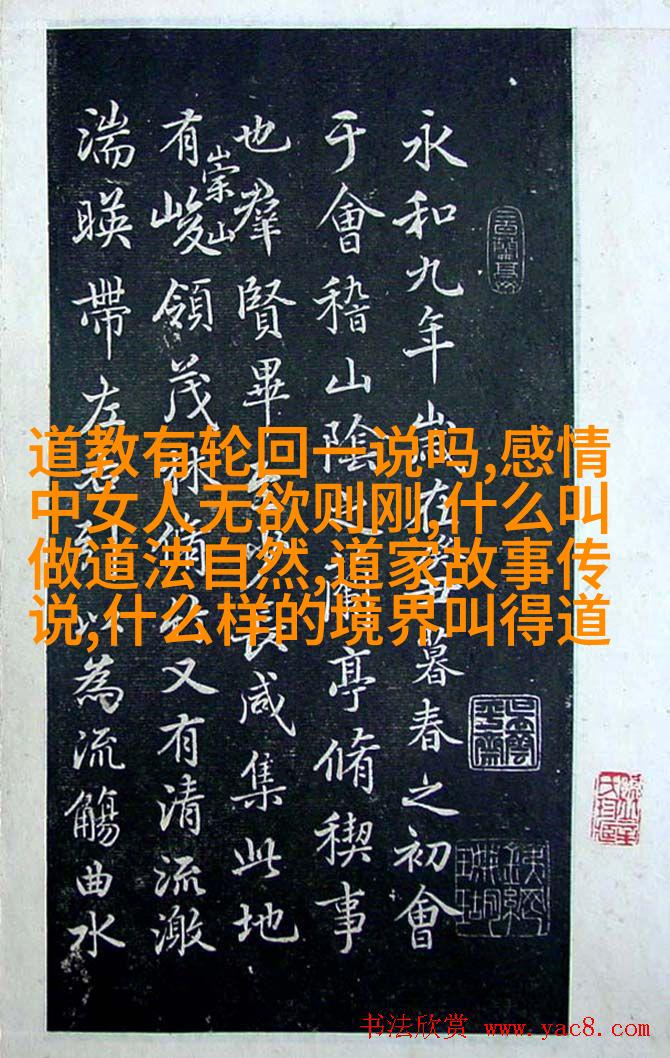 永和九年歲在癸丑暮春之初會
于會稽山陰之蘭亭脩稧事
也羣賢畢至少長咸集此地
有崇山峻領茂林脩竹又有清流激
湍暎帶左右引以為流觴曲水
道教有轮回一说吗,感情
中女人无欲则刚,什么叫
做道法自然,道家故事传
说,什么样的境界叫得道
书法欣赏 www.yac8.com